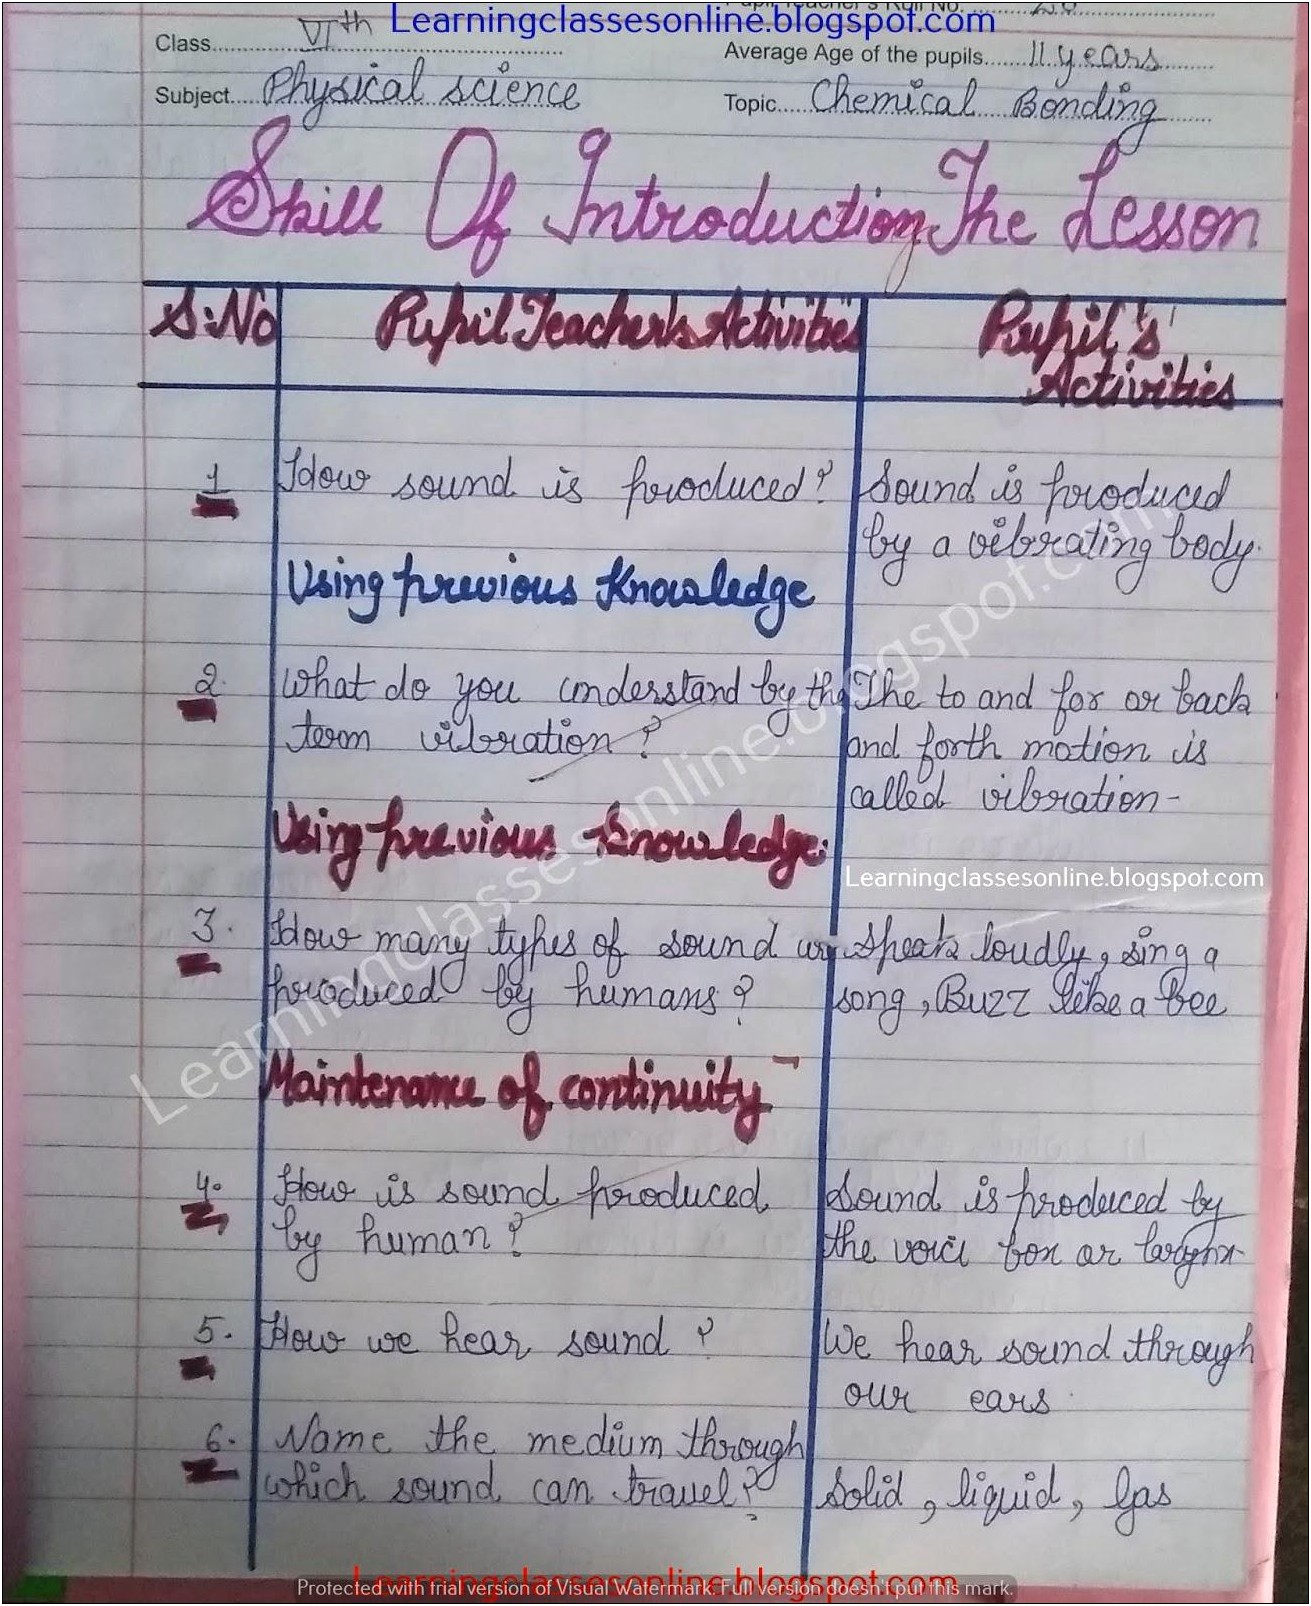 Learningclassesonline.blogspot.com
Class VIth
Average Age of the pupils 11 years
Subject Physical science
Topic Chemical Bonding
Skill Of Introduction The Lesson
S.No Pupil Teacher's Activities Pupil's
Activities
1 How sound is produced? Sound is produced
by a vibrating body.
Using previous Knowledge
2. What do you understand by the The to and for or back
term vibration? and forth motion is
called vibration-
Using previous Knowledge:
Learningclassesonline.blogspot.com
3. How many types of sound are Speak loudly, sing a
produced by humans? song, Buzz like a bee
Maintenance of continuity
Learningclassesonline.blogspot.com
4. How is sound produced Sound is produced by
by human? the voice box or larynx
5. How we hear sound? We hear sound through
our ears.
6. Name the medium through
which sound can travel? Solid, liquid, Gas
Learningclassesonline.blogspot.com
Protected with trial version of Visual Watermark. Full version doesn't put this mark.